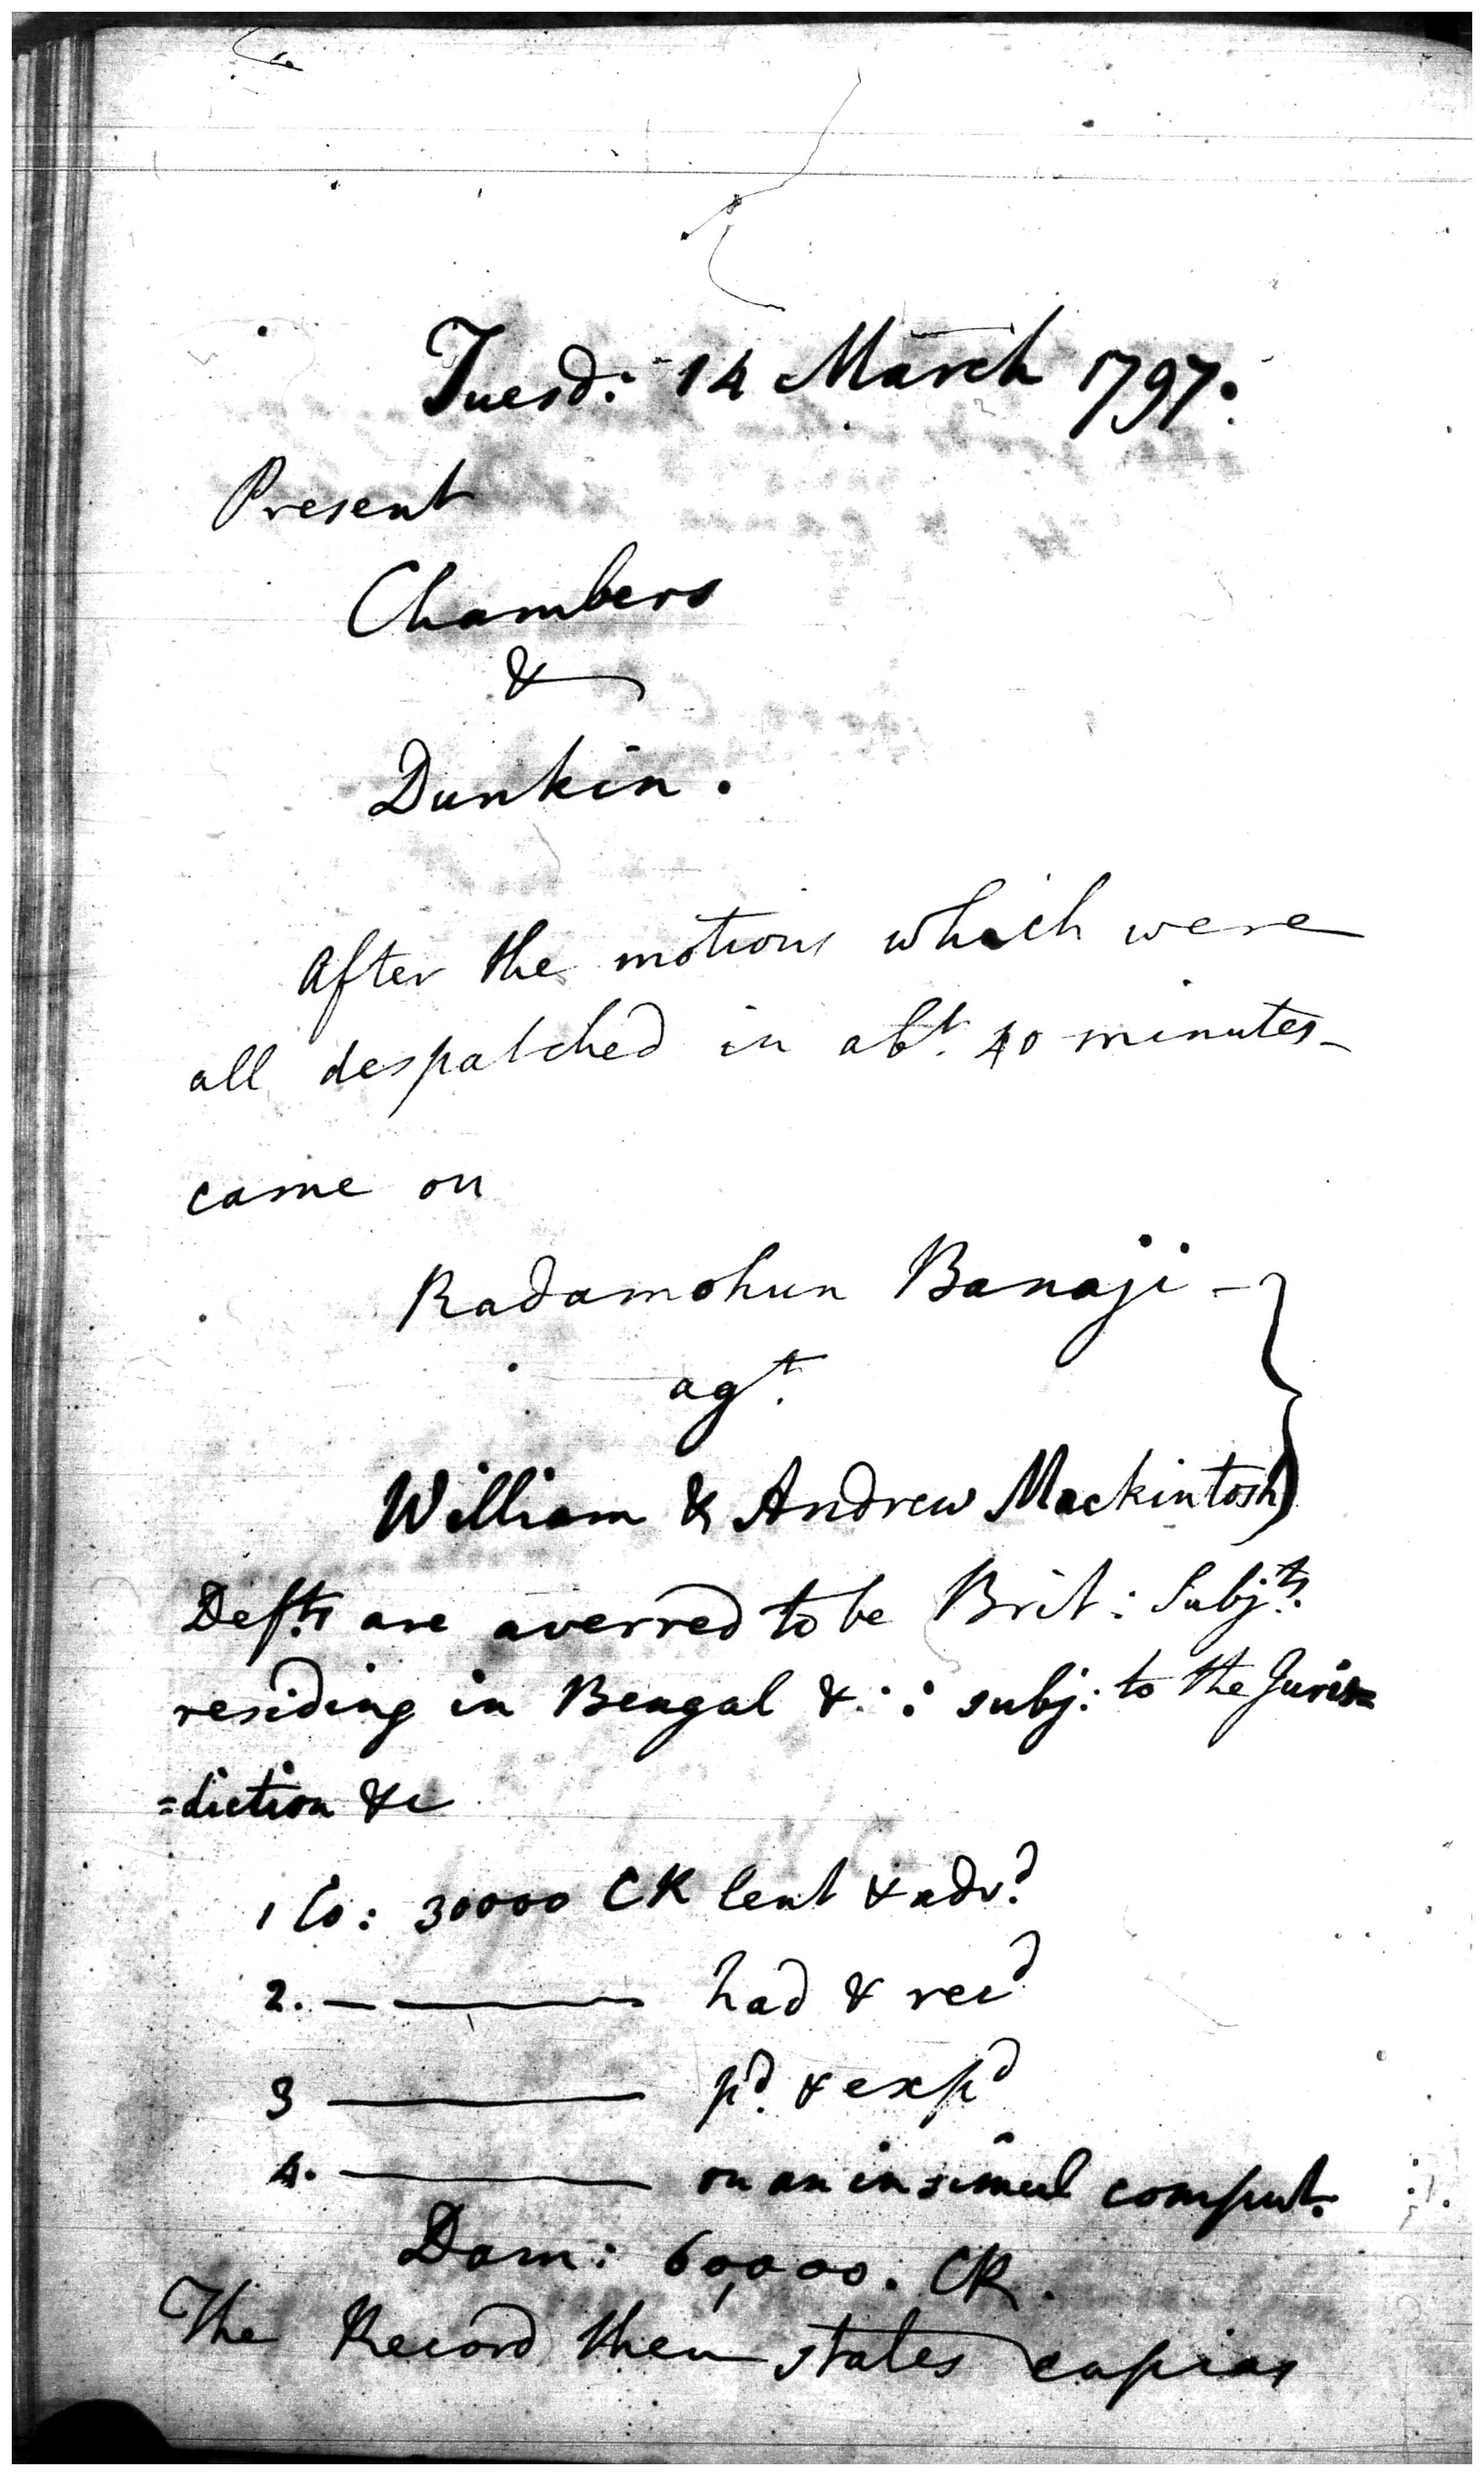 Tuesd: 14 March 1797.
Present
Chambers
&
Dunkin.
After the motions which were
all despatched in abt. 40 minutes
came on
Radamohun Banaji -
agt.
William & Andrew Mackintosh
Defts. are averred to be Brit: Subjts.
residing in Bengal & ∴ subj: to the Juris=
=diction &c
1 Co: 30000 CR lent & advd.
2. — —— had & recd
3 —— pd. & expd
4. —— on an insimul comput.
Dam: 60,000. CR.
The Record then states capias